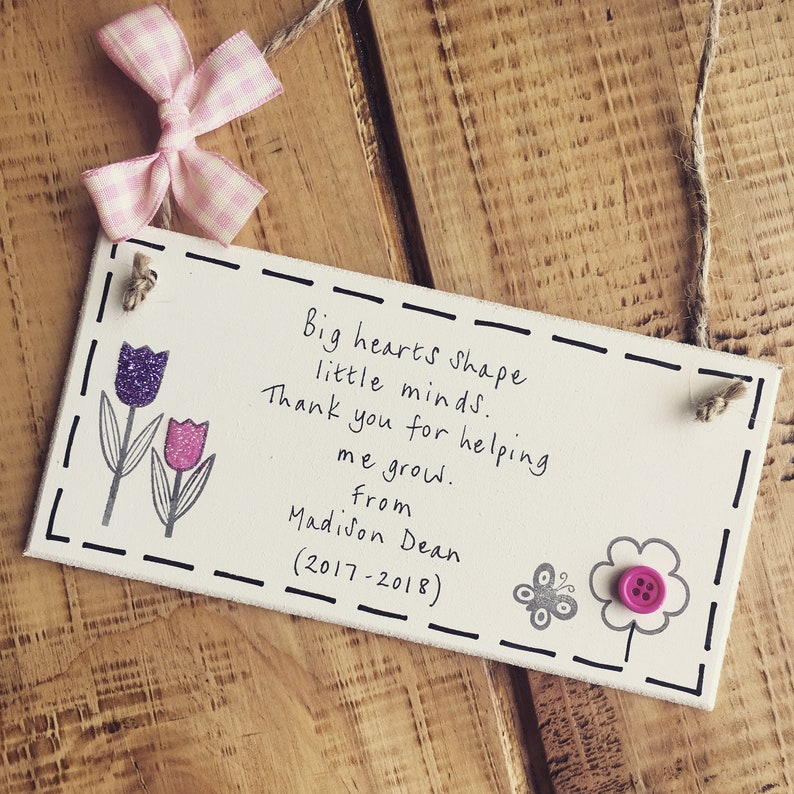 Big hearts shape
little minds.
Thank you for helping
me grow.
From
Madison Dean
(2017-2018)